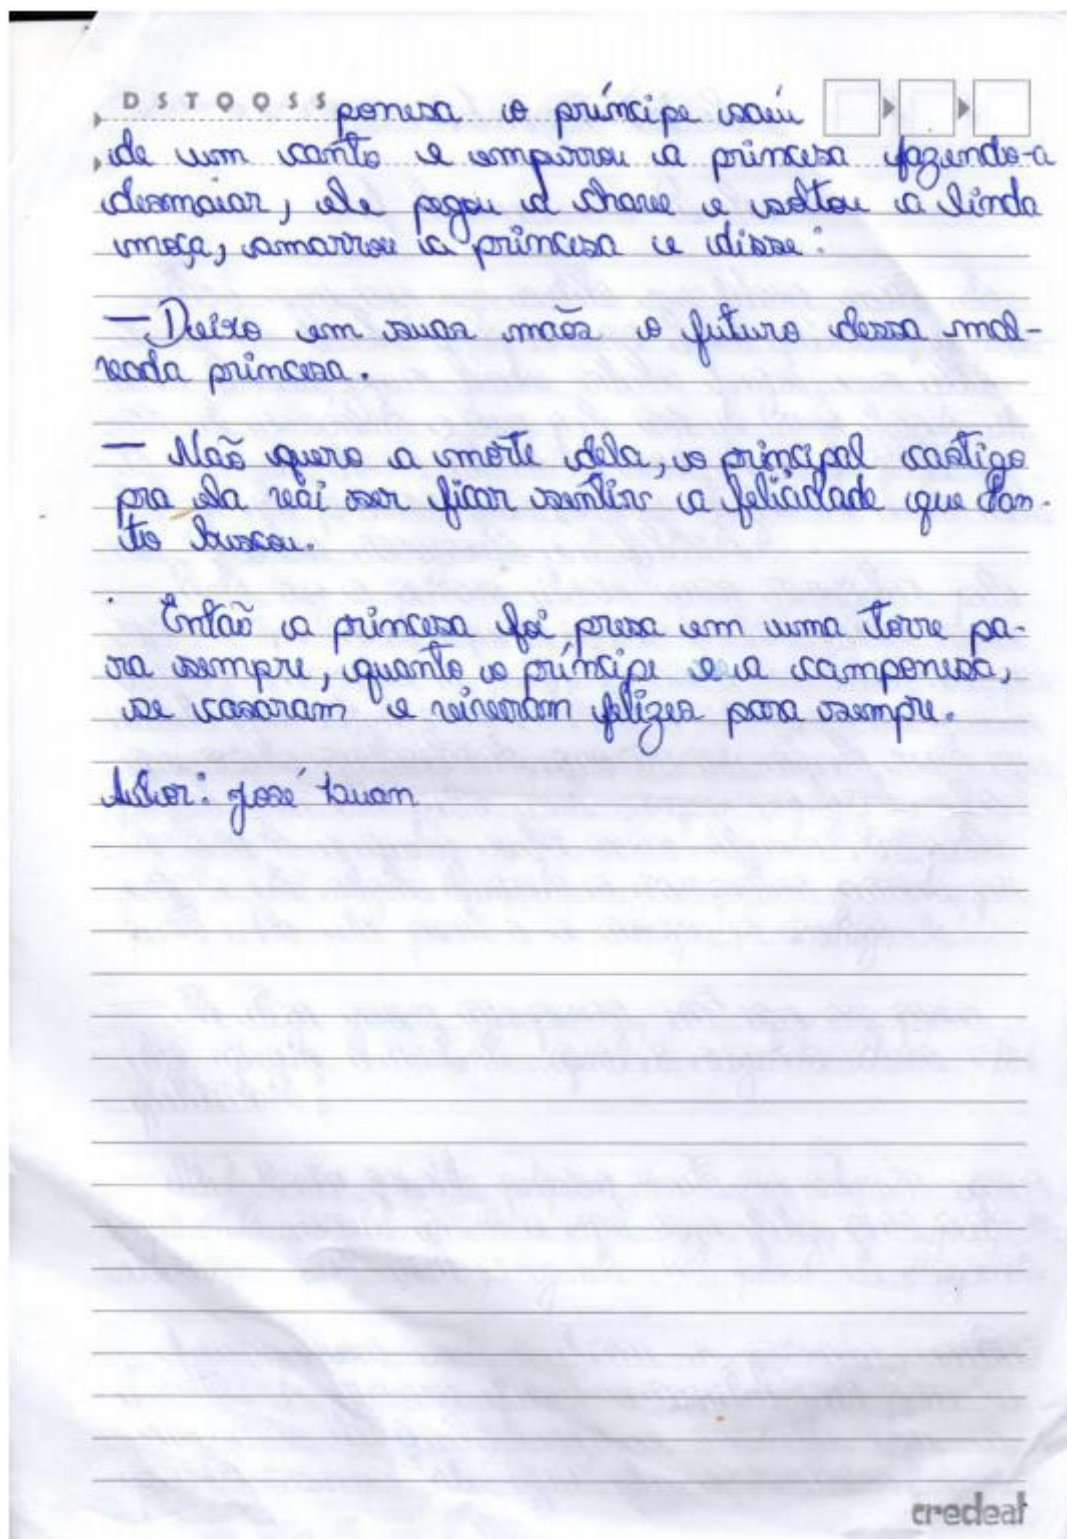 D S T Q Q S S
ponesa o príncipe saiu
de um canto e empurrou a princesa fazendo-a
desmaiar, ele pegou a chave e soltou a linda
moça, amarrou a princesa e disse:
— Deixo em suas mãos o futuro dessa mal-
vada princesa.
— Não quero a morte dela, o principal castigo
pra ela vai ser ficar sentir a felicidade que tan-
to buscou.
Então a princesa foi presa em uma torre pa-
ra sempre, quanto o príncipe e a camponesa,
se casaram e viveram felizes para sempre.
Autor: José Luan
credeal